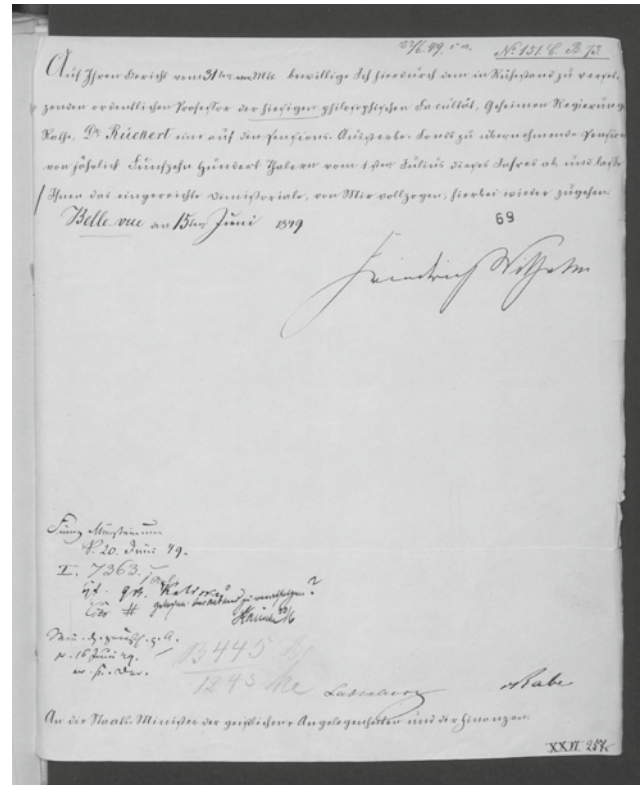 23/6.49.
No 151. C. B. 73.
Auf Ihren Bericht vom 31ten v. Mts. bewillige Ich hierdurch dem in Ruhestand zu verset-
zenden ordentlichen Professor der hiesigen philosophischen Facultät, Geheimen Regierungs
Rathe, Dr. Rückert eine auf den Pensions-Aussterbe-Fonds zu übernehmende Pension
von jährlich Fünfzehn Hundert Thalern vom 1sten Julius dieses Jahres ab und lasse
Ihnen das eingereichte Dimissoriale, von Mir vollzogen, hierbei wieder zugehen.
Bellevue den 15ten Juni 1849
69
Friedrich Wilhelm
Finanz Ministerium
20. Juni 49.
I. 7363.
16 Juni 49.
13445
1243
Ladenberg Rabe
An die Staats-Minister der geistlichen Angelegenheiten und der Finanzen.
XXVI. 257.